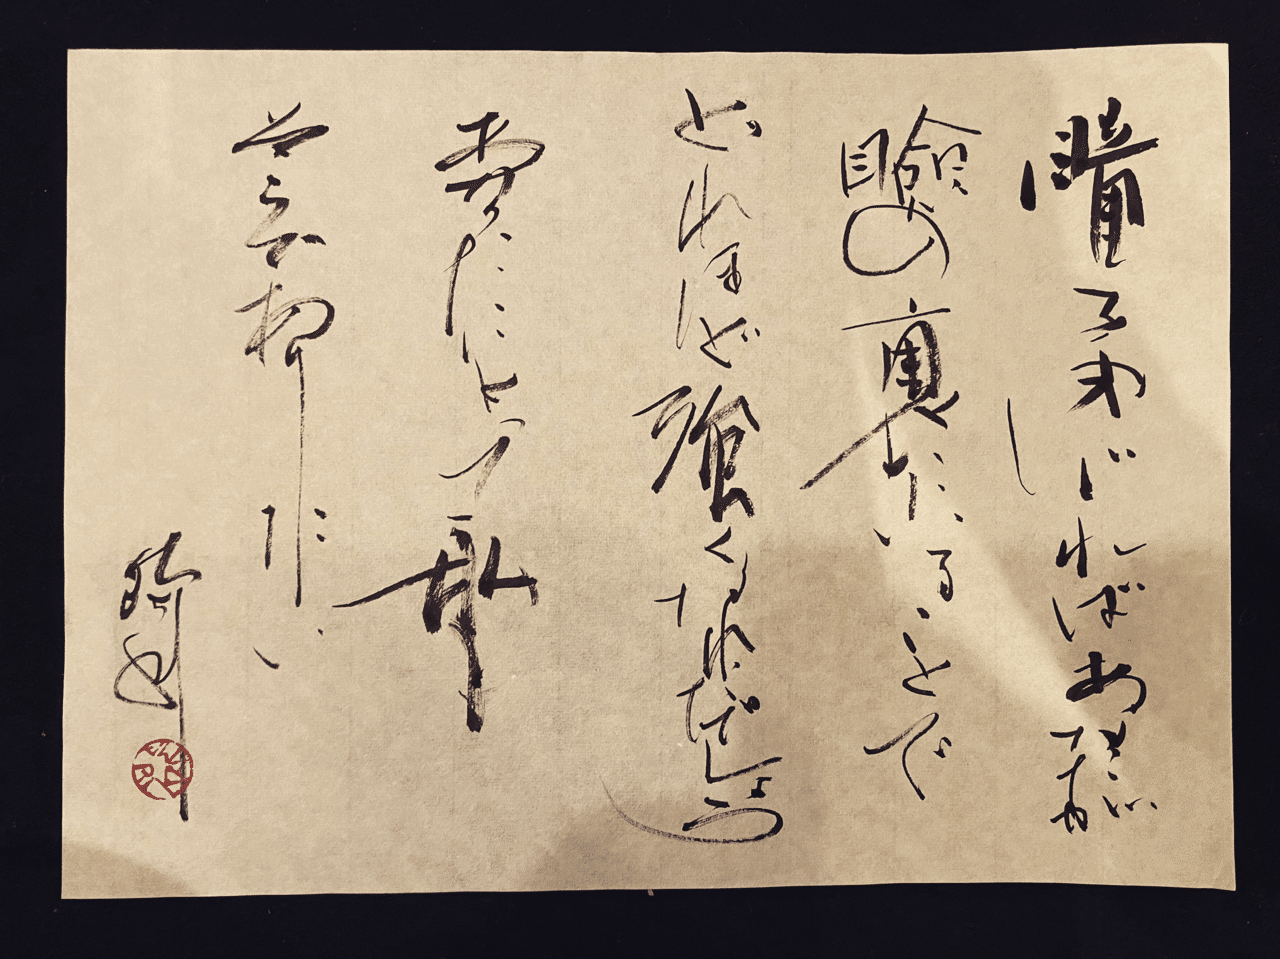 瞳を閉じればあなたが
瞼の裏にいることで
どれほど強くなれたでしょう
あなたにとって私も
そうでありたい